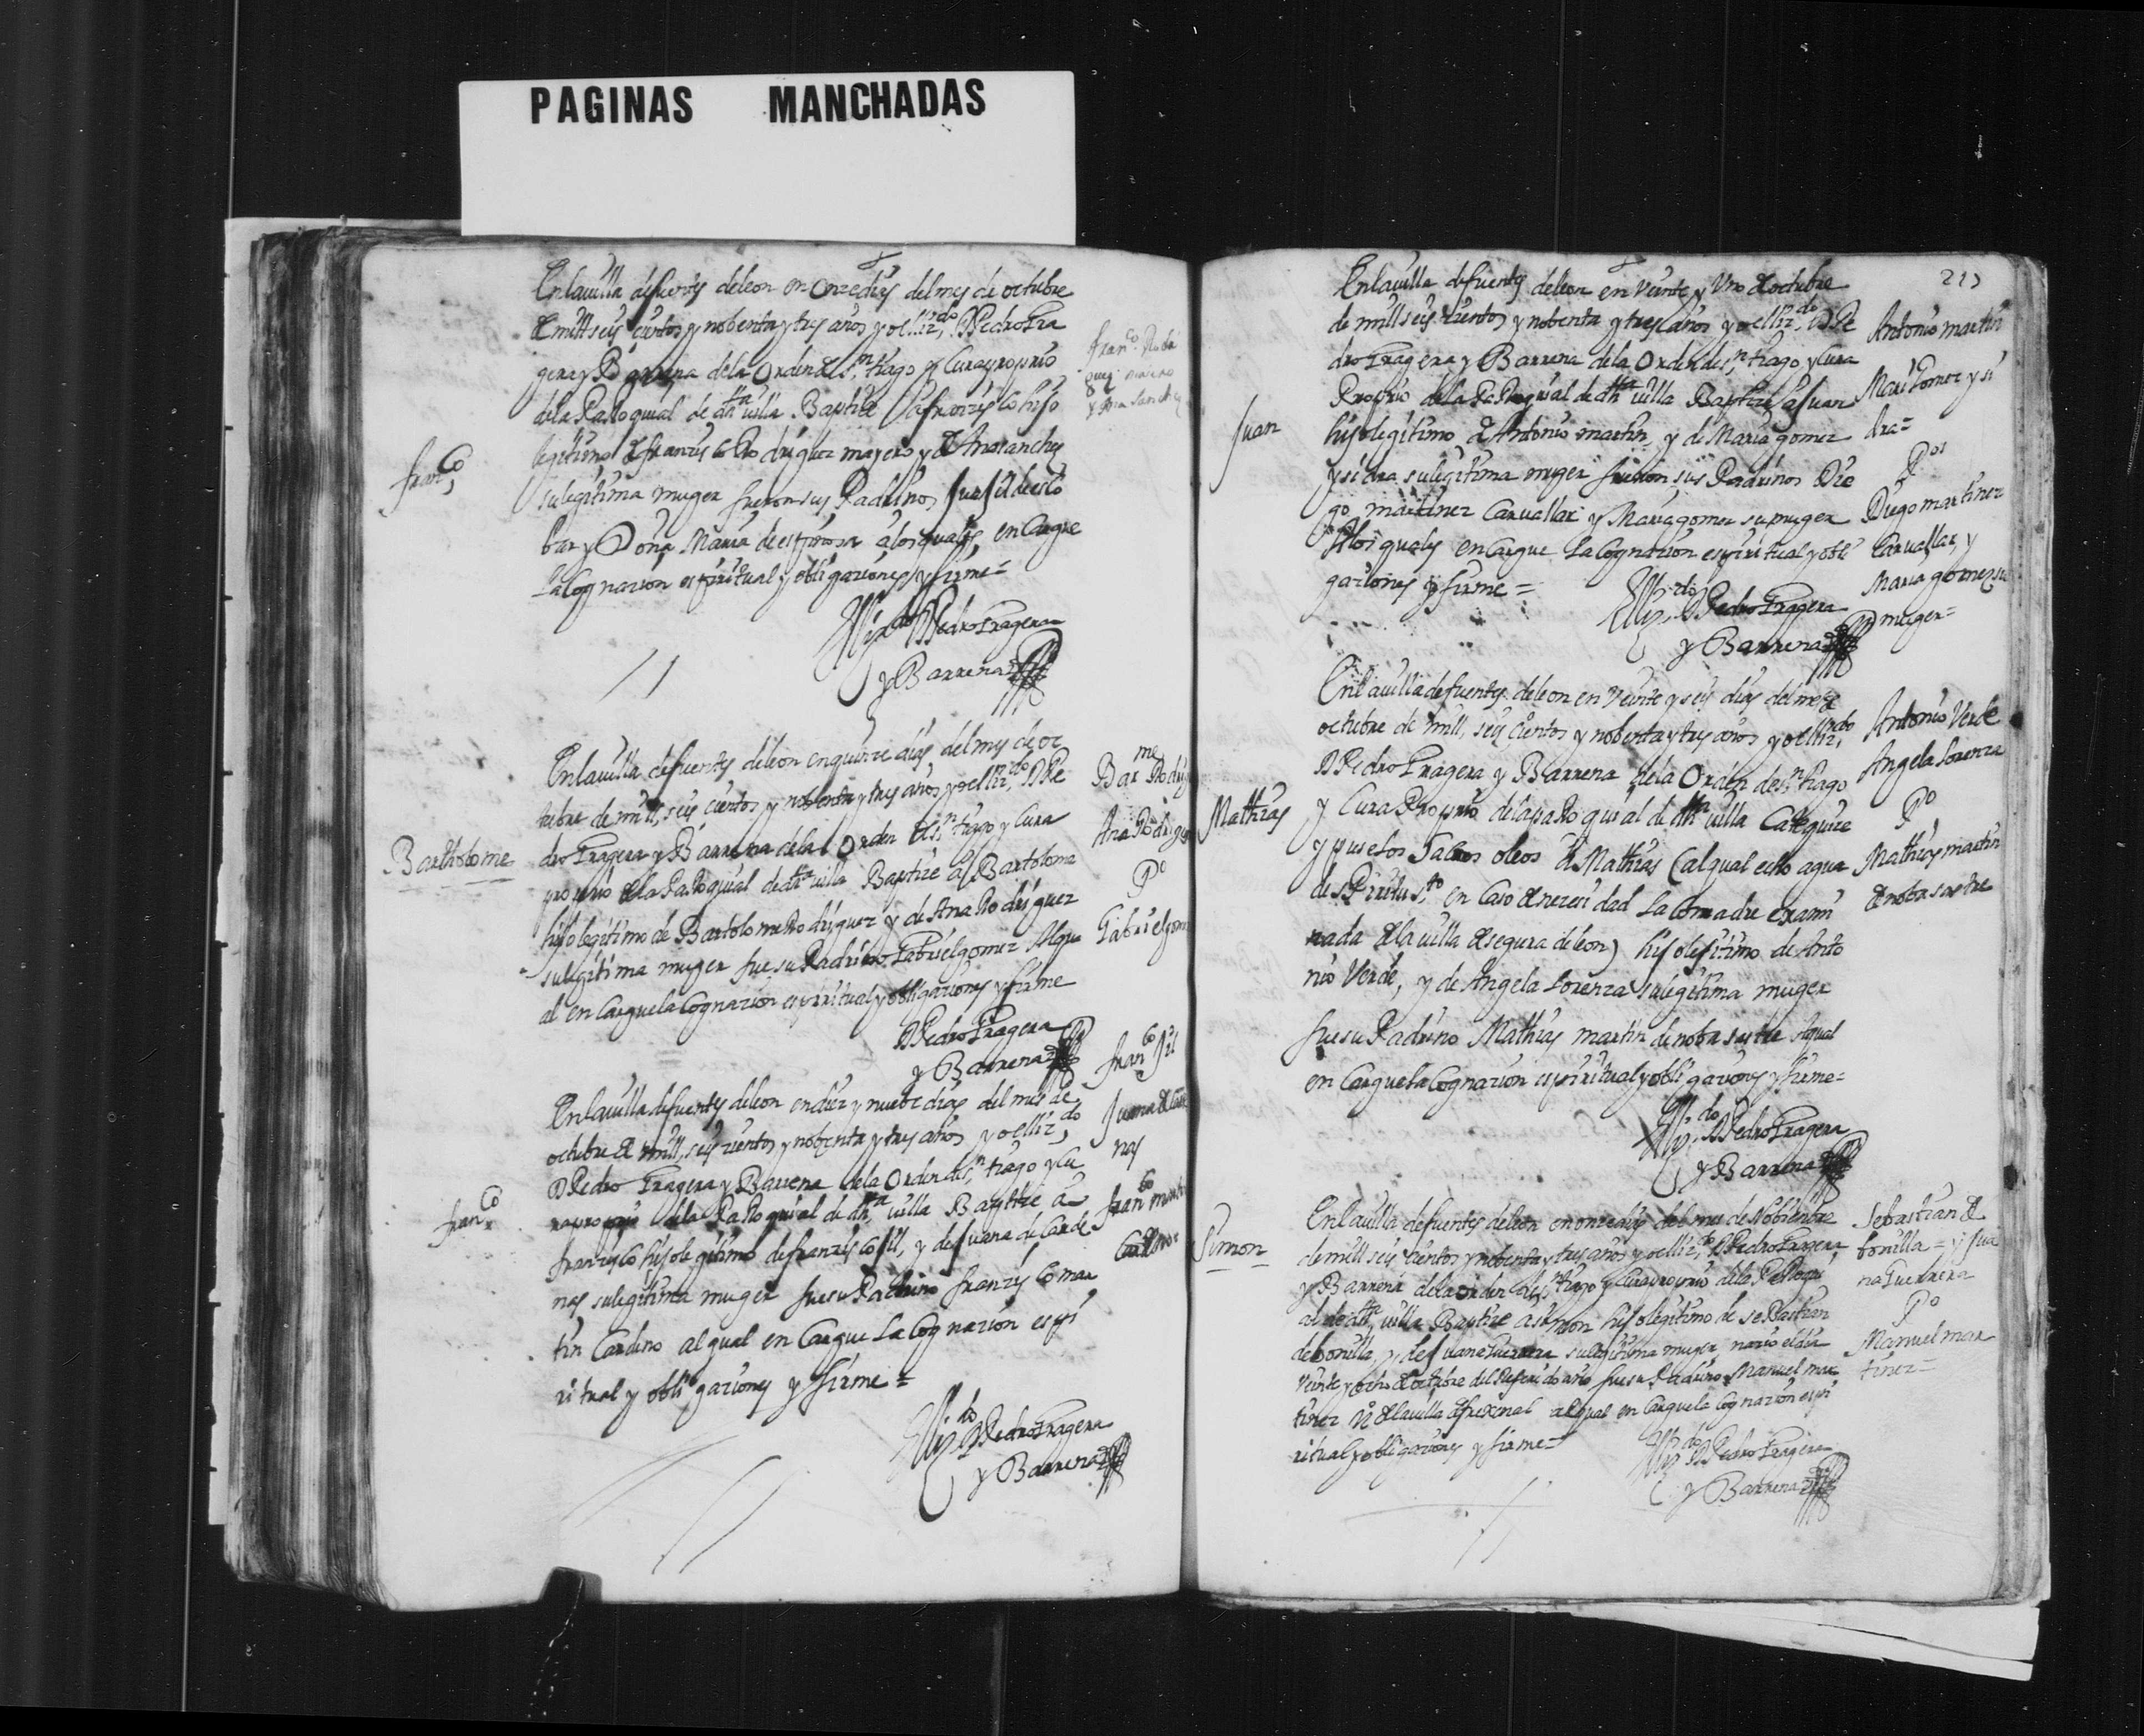 PAGINAS MANCHADAS
En la villa de fuentes de leon en Onze dias del mes de octubre
de mill seis cientos y nobenta y tres años yo el liz.do D Pedro Fra
gera y Barrena de la Orden de S.n tiago y Cura proprio
de la Parroquial de dha villa Baptize a franzisco hijo
legitimo de franzisco Rodriguez mayero y de Ana sanchez
su legitima muger fueron sus Padrinos Juº Gil de esco
bar y Doña Maria de espinosa a los quales encargue
la Cognazion espiritual y obligaziones y firme=
Liz.do D Pedro Fragera
y Barrena
fran.co
fran.co Rodri
guez
y Ana Sanchez
En la villa de fuentes de leon en quinze dias del mes de oc
tubre de mill, seis cientos y nobenta y tres años yo el liz.do D Pe
dro Fragera y Barrena de la Orden de S.n tiago y Cura
proprio de la Parroquial de dha villa Baptize a Bartolome
hijo legitimo de Bartolome Rodriguez y de Ana Rodriguez
su legitima muger fue su Padrino Gabriel gomez Alqu
al encargue la Cognazion espiritual y obligaziones y firme
D Pedro Fragera
y Barrena
Bartholome
Bar.me Rodrig
Ana Rodrigu
P.o
Gabriel gom
En la villa de fuentes de leon en diez y nuebe dias del mes de
octubre de mill, seis zientos y nobenta y tres años yo el liz.do
D Pedro Fragera y Barrena de la Orden de S.n tiago y Cu
ra proprio de la Parroquial de dha villa Baptize a
franzisco hijo legitimo de franzisco Gil, y de Juana de Carde
nas su legitima muger fue su Padrino franzisco mar
tin Cardino al qual encargue La Cognazion espi
ritual y obligaziones y firme=
Liz.do D Pedro Fragera
y Barrena
fran.co
fran.co Gil
Juana de Car
nas
fran.co mart
213
En la villa de fuentes de leon en veinte y Uno de octubre
de mill seis zientos y nobenta y tres años yo el liz.do D Pe
dro Fragera y Barrena de la Orden de S.n tiago y Cura
Proprio de la Parroquial de dha villa Baptize a Juan
hijo legitimo de Antonio martin, y de Maria gomez
ysidra su legitima muger fueron sus Padrinos Die
go martinez Carvallar y Maria gomez su muger
A los quales encargue La Cognazion espiritual y obli
gaziones y firme=
Liz.do D Pedro Fragera
y Barrena
Juan
Antonio martin
Mari Gomez ysi
dra=
P.os
Diego martinez
Carvallar, y
Maria gomez su
muger=
En la villa de fuentes de leon en veinte y seis dias del mes de
octubre de mill, seis zientos y nobenta y tres años yo el liz.do
D Pedro Fragera y Barrena de la Orden de S.n tiago
y Cura Proprio de la parroquial de dha villa Catequize
y puse los Santos oleos a Mathias (al qual echo agua
de spiritu s.to en Caso de nezesidad La Comadre exami
nada de la villa de segura de leon) hijo lejitimo de Anto
nio Verde, y de Angela Lorenza su legitima muger
fue su Padrino Mathias martin de noba sastre Alqual
encargue la Cognazion espiritual y obligaziones y firme=
Liz.do D Pedro Fragera
y Barrena
Mathias
Antonio Verde
Angela Lorenza
P.o
Mathias martin
de noba sastre
En la villa de fuentes de leon en onze dias del mes de Nobiembre
de mill seis zientos y nobenta y tres años yo el liz.do D Pedro Fragera
y Barrena de la orden de S.n tiago y Cura proprio de la Parroqui
al de dha villa Baptize a simon hijo legitimo de seBastian
de bonilla, y de Juana Guerrera su legitima muger nazio el dia
veinte y ocho de octubre del Referido año fue su Padrino Manuel mar
tinez vº de la villa de frexenal al qual encargue la Cognazion espi
ritual y obligaziones y firme=
Liz.do D Pedro Fragera
y Barrena
Simon
Sebastian de
bonilla= y Jua
na Guerrera
P.o
Manuel mar
tinez=